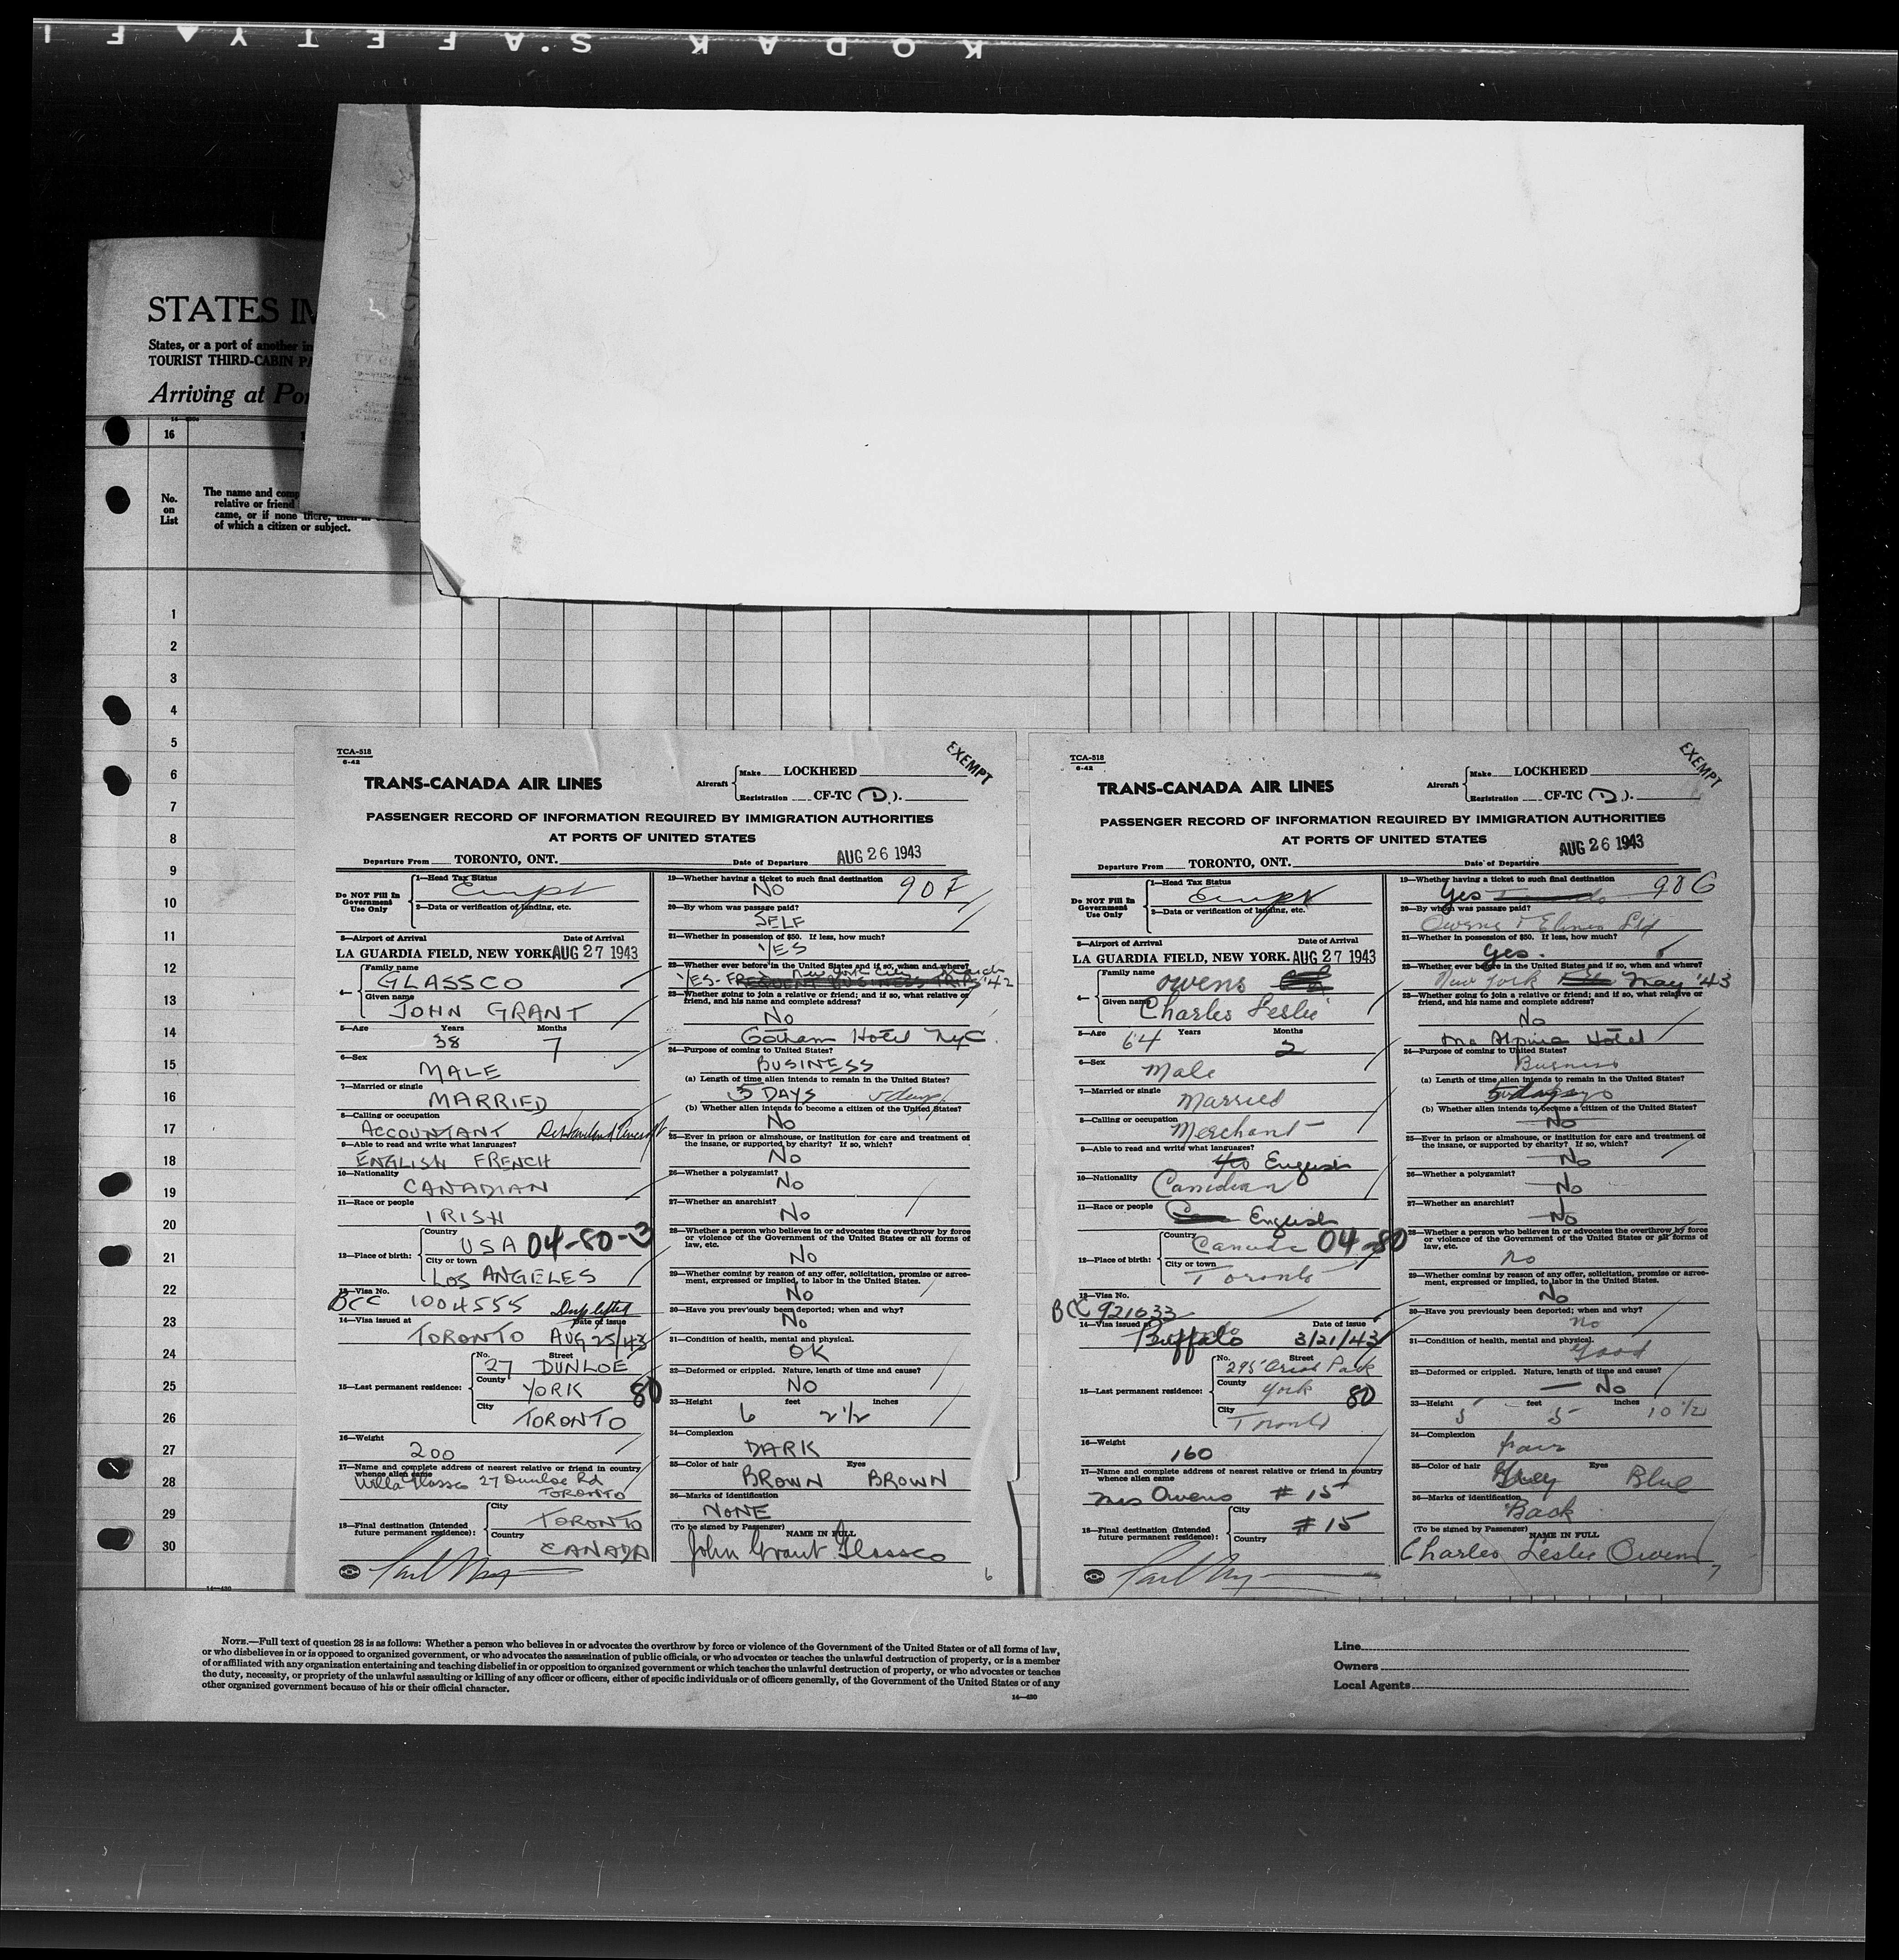 KODAK S'AFETY ▲ F I
STATES IM
States, or a port of another in
TOURIST THIRD-CABIN PA
Arriving at Por
16
No.
on
List
The name and comp
relative or friend
came, or if none there, then in
of which a citizen or subject.
1
2
3
4
5
6
7
8
9
10
11
12
13
14
15
16
17
18
19
20
21
22
23
24
25
26
27
28
29
30
TCA-518
6-42
EXEMPT
TRANS-CANADA AIR LINES
Aircraft Make LOCKHEED
Registration CF-TC (D).
PASSENGER RECORD OF INFORMATION REQUIRED BY IMMIGRATION AUTHORITIES
AT PORTS OF UNITED STATES
Departure From TORONTO, ONT. Date of Departure AUG 26 1943
Do NOT Fill In
Government
Use Only
1—Head Tax Status
2—Data or verification of landing, etc.
3—Airport of Arrival Date of Arrival
LA GUARDIA FIELD, NEW YORK AUG 27 1943
4— Family name
GLASSCO
Given name
JOHN GRANT
5—Age Years Months
38 7
6—Sex
MALE
7—Married or single
MARRIED
8—Calling or occupation
ACCOUNTANT
9—Able to read and write what languages?
ENGLISH FRENCH
10—Nationality
CANADIAN
11—Race or people
IRISH
12—Place of birth: Country
USA 04-80-3
City or town
LOS ANGELES
13—Visa No.
BCC 1004555
14—Visa issued at Date of issue
TORONTO AUG 25/43
15—Last permanent residence: No. Street
27 DUNLOE
County
YORK 80
City
TORONTO
16—Weight
200
17—Name and complete address of nearest relative or friend in country
whence alien came
Willa Glassco 27 Dunloe Rd
TORONTO
18—Final destination (Intended
future permanent residence): City
TORONTO
Country
CANADA
19—Whether having a ticket to such final destination
NO 90 F
20—By whom was passage paid?
SELF
21—Whether in possession of $50. If less, how much?
YES
22—Whether ever before in the United States and if so, when and where?
New York City March
YES- FREQUENT BUSINESS TRIPS '42
23—Whether going to join a relative or friend; and if so, what relative or
friend, and his name and complete address?
NO
Gotham Hotel NYC.
24—Purpose of coming to United States?
BUSINESS
(a) Length of time alien intends to remain in the United States?
5 DAYS 5 days
(b) Whether alien intends to become a citizen of the United States?
NO
25—Ever in prison or almshouse, or institution for care and treatment of
the insane, or supported by charity? If so, which?
NO
26—Whether a polygamist?
NO
27—Whether an anarchist?
NO
28—Whether a person who believes in or advocates the overthrow by force
or violence of the Government of the United States or all forms of
law, etc.
NO
29—Whether coming by reason of any offer, solicitation, promise or agree-
ment, expressed or implied, to labor in the United States.
NO
30—Have you previously been deported; when and why?
NO
31—Condition of health, mental and physical.
OK
32—Deformed or crippled. Nature, length of time and cause?
NO
33—Height feet inches
6 2 1/2
34—Complexion
DARK
35—Color of hair Eyes
BROWN BROWN
36—Marks of identification
NONE
(To be signed by Passenger) NAME IN FULL
John Grant Glassco
6
TCA-518
6-42
EXEMPT
TRANS-CANADA AIR LINES
Aircraft Make LOCKHEED
Registration CF-TC (D).
PASSENGER RECORD OF INFORMATION REQUIRED BY IMMIGRATION AUTHORITIES
AT PORTS OF UNITED STATES
Departure From TORONTO, ONT. Date of Departure AUG 26 1943
Do NOT Fill In
Government
Use Only
1—Head Tax Status
2—Data or verification of landing, etc.
3—Airport of Arrival Date of Arrival
LA GUARDIA FIELD, NEW YORK. AUG 27 1943
4— Family name
Owens
Given name
Charles Leslie
5—Age Years Months
64 2
6—Sex
Male
7—Married or single
Married
8—Calling or occupation
Merchant
9—Able to read and write what languages?
Yes English
10—Nationality
Canadian
11—Race or people
English
12—Place of birth: Country
Canada 04-80
City or town
Toronto
13—Visa No.
BCC 921033
14—Visa issued at Date of issue
Buffalo 3/21/43
15—Last permanent residence: No. Street
295 Oriole Park
County
York 80
City
Toronto
16—Weight
160
17—Name and complete address of nearest relative or friend in country
whence alien came
Mrs Owens # 15
18—Final destination (Intended
future permanent residence): City
# 15
Country
19—Whether having a ticket to such final destination
Yes 90 G
20—By whom was passage paid?
Owens Elmes Ltd
21—Whether in possession of $50. If less, how much?
Yes.
22—Whether ever before in the United States and if so, when and where?
New York May '43
23—Whether going to join a relative or friend; and if so, what relative or
friend, and his name and complete address?
No
Mc Alpine Hotel
24—Purpose of coming to United States?
Business
(a) Length of time alien intends to remain in the United States?
5 days
(b) Whether alien intends to become a citizen of the United States?
No
25—Ever in prison or almshouse, or institution for care and treatment of
the insane, or supported by charity? If so, which?
No
26—Whether a polygamist?
No
27—Whether an anarchist?
No
28—Whether a person who believes in or advocates the overthrow by force
or violence of the Government of the United States or all forms of
law, etc.
no
29—Whether coming by reason of any offer, solicitation, promise or agree-
ment, expressed or implied, to labor in the United States.
No
30—Have you previously been deported; when and why?
no
31—Condition of health, mental and physical.
Good
32—Deformed or crippled. Nature, length of time and cause?
— No
33—Height feet inches
5 5 10 1/2
34—Complexion
fair
35—Color of hair Eyes
Grey Blue
36—Marks of identification
Back
(To be signed by Passenger) NAME IN FULL
Charles Leslie Owens
7
14—430
NOTE.—Full text of question 28 is as follows: Whether a person who believes in or advocates the overthrow by force or violence of the Government of the United States or of all forms of law,
or who disbelieves in or is opposed to organized government, or who advocates the assassination of public officials, or who advocates or teaches the unlawful destruction of property, or is a member
of or affiliated with any organization entertaining and teaching disbelief in or opposition to organized government or which teaches the unlawful destruction of property, or who advocates or teaches
the duty, necessity, or propriety of the unlawful assaulting or killing of any officer or officers, either of specific individuals or of officers generally, of the Government of the United States or of any
other organized government because of his or their official character.
14—430
Line
Owners
Local Agents